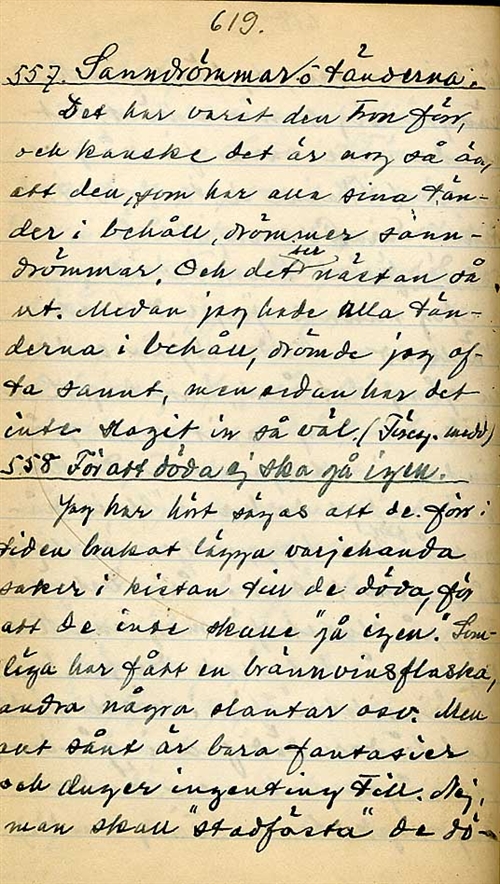 619.
557. Sanndrömmar o tänderna.
Det har varit den tron förr,
och kanske det är nog så än,
att den, som har alla sina tän-
der i behåll, drömmer sann-
drömmar. Och det ser nästan så
ut. Medan jag hade alla tän-
derna i behåll, drömde jag of-
ta sannt, men sedan har det
inte slagit in så väl. (Föreg. medd)
558 För att döda ej ska gå igen.
Jag har hört sägas att de förr i
tiden brukat lägga varjehanda
saker i kistan till de döda, för
att de inte skulle "gå igen." Som-
liga har fått en brännvinsflaska,
andra några slantar osv. Men
sånt är bara fantasier
och duger ingenting till. Nej,
man skall "stadfästa" de dö-